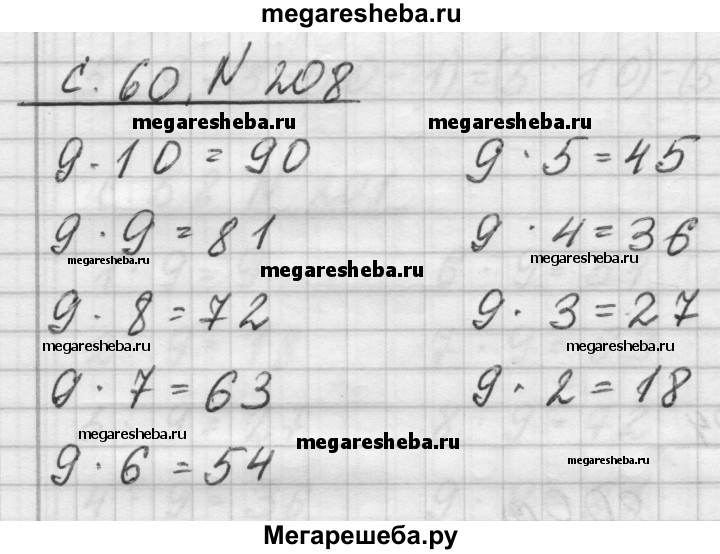 megaresheba.ru
с. 60, N 208
megaresheba.ru megaresheba.ru
9 · 10 = 90
9 · 5 = 45
9 · 9 = 81
9 · 4 = 36
megaresheba.ru megaresheba.ru megaresheba.ru
9 · 8 = 72
9 · 3 = 27
megaresheba.ru megaresheba.ru
9 · 7 = 63
9 · 2 = 18
megaresheba.ru megaresheba.ru
9 · 6 = 54
megaresheba.ru
Мегарешеба.ру